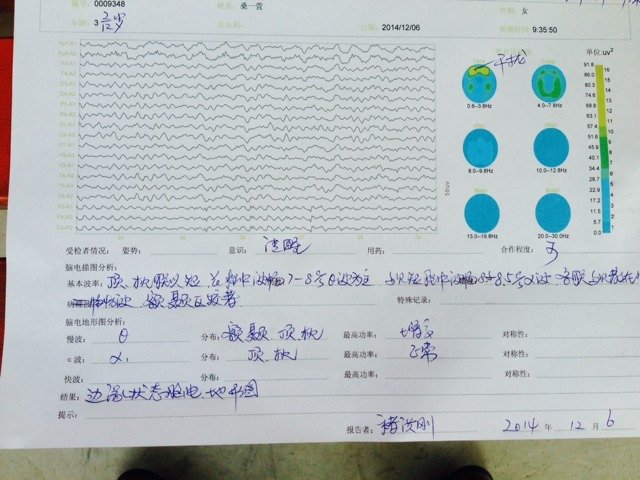 编号: 0009348 姓名: 桑一萱 性别: 女
年龄: 3 2/12岁 左右利: 日期: 2014/12/06 检测时间: 9:35:50
Fp1-A1
Fp2-A2
F3-A1
F4-A2
C3-A1
C4-A2
P3-A1
P4-A2
O1-A1
O2-A2
F7-A1
F8-A2
T3-A1
T4-A2
T5-A1
T6-A2
50uv
干扰
0.8~3.8Hz 4.0~7.8Hz
8.0~9.8Hz 10.0~12.8Hz
13.0~19.8Hz 20.0~30.0Hz
单位:uv²
91.8 16
86.0 15
80.3 14
74.6 13
68.8 12
63.1 11
57.4 10
51.6 9
45.9 8
40.1 7
34.4 6
28.7 5
22.9 4
17.2 3
11.5 2
5.7 1
0.0
受检者情况: 姿势: 意识: 清醒 用药: 合作程度: 可
脑电描图分析:
基本波率: 顶、枕联以短 程中波幅7-8号θ波为主
额颞区 著 特殊记录:
脑电地形图分析:
慢波: θ 分布: 额颞、顶、枕 最高功率: 增高 对称性:
α波: α₁ 分布: 顶、枕 最高功率: 正常 对称性:
快波: 分布: 最高功率: 对称性:
结果: 边缘状态脑电地形图
提示:
报告者: 2014 年 12 月 6